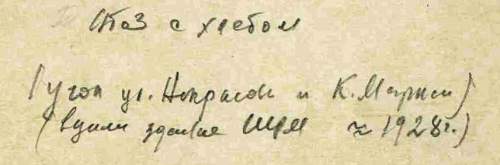 с хлебом
(угол ул. Некрасова и К. Маркса)
(вдали здание 1928г.)